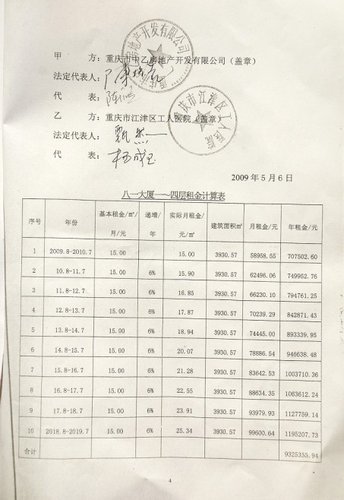 甲 方：重庆市中乙房地产开发有限公司（盖章）
法定代表人：
代 表：
乙 方：重庆市江津区工人医院（盖章）
法定代表人：
代 表：
重庆市江津区工人医院
2009 年 5 月 6 日
八一大厦一—四层租金计算表
序号 年份 基本租金/㎡/月/元 递增/年 实际月租金/元/㎡ 建筑面积㎡ 月租金/元 年租金/元
1 2009.8-2010.7 15.00 15.00 3930.57 58958.55 707502.60
2 10.8-11.7 15.00 6% 15.90 3930.57 62496.06 749952.76
3 11.8-12.7 15.00 6% 16.85 3930.57 66230.10 794761.25
4 12.8-13.7 15.00 6% 17.87 3930.57 70239.29 842871.43
5 13.8-14.7 15.00 6% 18.94 3930.57 74445.00 893339.95
6 14.8-15.7 15.00 6% 20.07 3930.57 78886.54 946638.48
7 15.8-16.7 15.00 6% 21.28 3930.57 83642.53 1003710.36
8 16.8-17.7 15.00 6% 22.55 3930.57 88634.35 1063612.24
9 17.8-18.7 15.00 6% 23.91 3930.57 93979.93 1127759.14
10 2018.8-2019.7 15.00 6% 25.34 3930.57 99600.64 1195207.73
合计 9325355.94
4